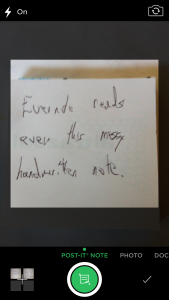 On
Evernote reads
even this messy
handwritten note.
POST-IT® NOTE PHOTO DOC